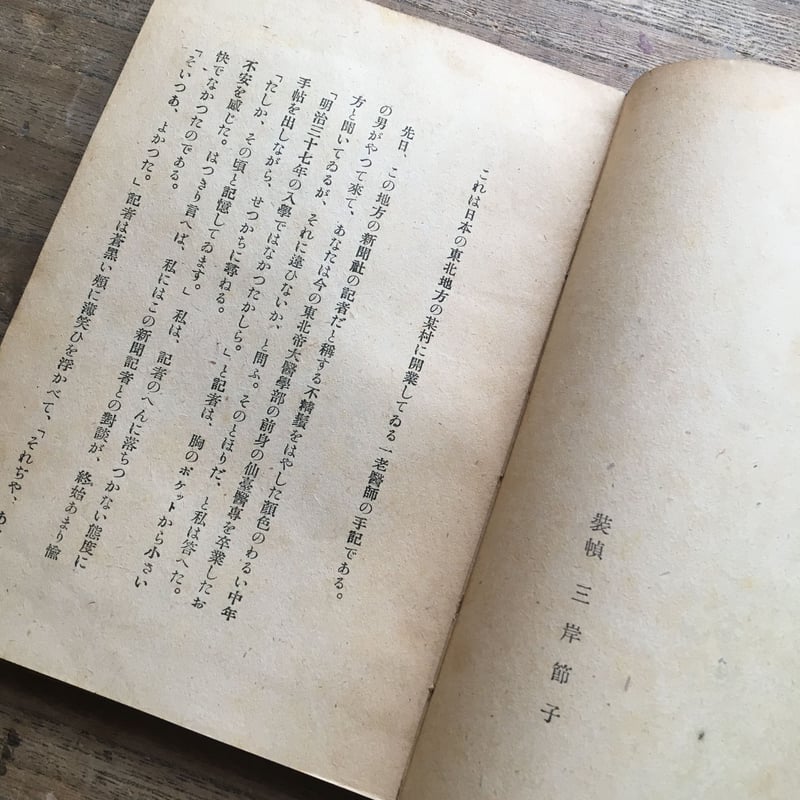 裝幀 三岸節子
これは日本の東北地方の某村に開業してゐる一老醫師の手記である。
先日、この地方の新聞社の記者だと稱する不精鬚をはやした顔色のわるい中年
の男がやつて來て、あなたは今の東北帝大醫學部の前身の仙臺醫專を卒業したお
方と聞いてゐるが、それに違ひないか、と問ふ。そのとほりだ、と私は答へた。
「明治三十七年の入學ではなかつたかしら。」と記者は、胸のポケットから小さい
手帖を出しながら、せつかちに尋ねる。
「たしか、その頃と記憶してゐます。」私は、記者のへんに落ちつかない態度に
不安を感じた。はつきり言へば、私にはこの新聞記者との對談が、終始あまり愉
快でなかつたのである。
「そいつあ、よかつた。」記者は蒼黒い頰に薄笑ひを浮かべて、「それぢや、あ